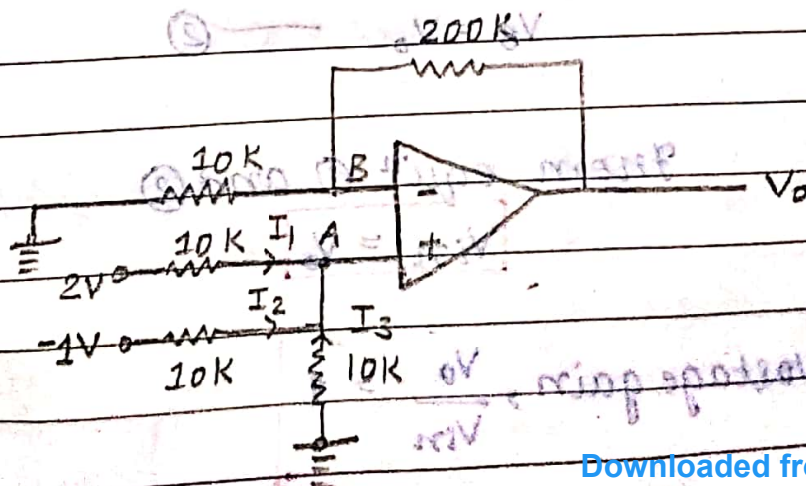 200K
10K
B
-
Vo
10K
I1
A
+
2V
I2
-1V
I3
10K
10K
Downloaded fro